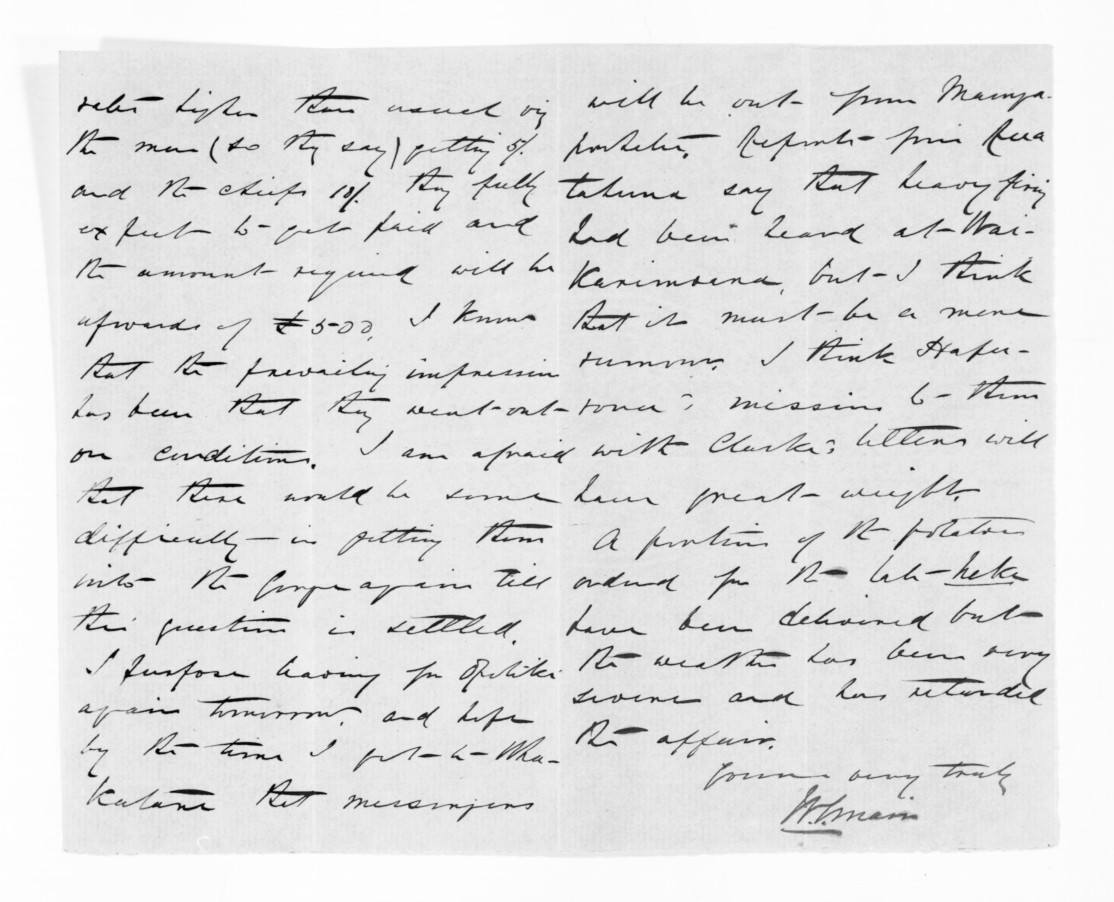 rates higher than usual viz
the men (so they say) getting 5/.
and the chiefs 10/. They fully
expect to get paid and
the amount required will be
upwards of £500. I know
that the prevailing impression
has been that they went out
on conditions. I am afraid
that there would be some
difficulty in getting them
into the Gorge again till
this question is settled.
I purpose leaving for Opotiki
again tomorrow. and hope
by the time I get to Wha-
katane that messengers
will be out from Maunga-
pohatu. Reports from Rua
tahuna say that heavy firing
had been heard at Wai-
Karimoana, but I think
that it must be a mere
rumour. I think Hapu-
rona's mission to them
with Clarke's letters will
have great weight.
A portion of the potatoes
ordered for the late heke
have been delivered but
the weather has been very
severe and has retarded
the affair.
Yours very truly
W.G.Mair